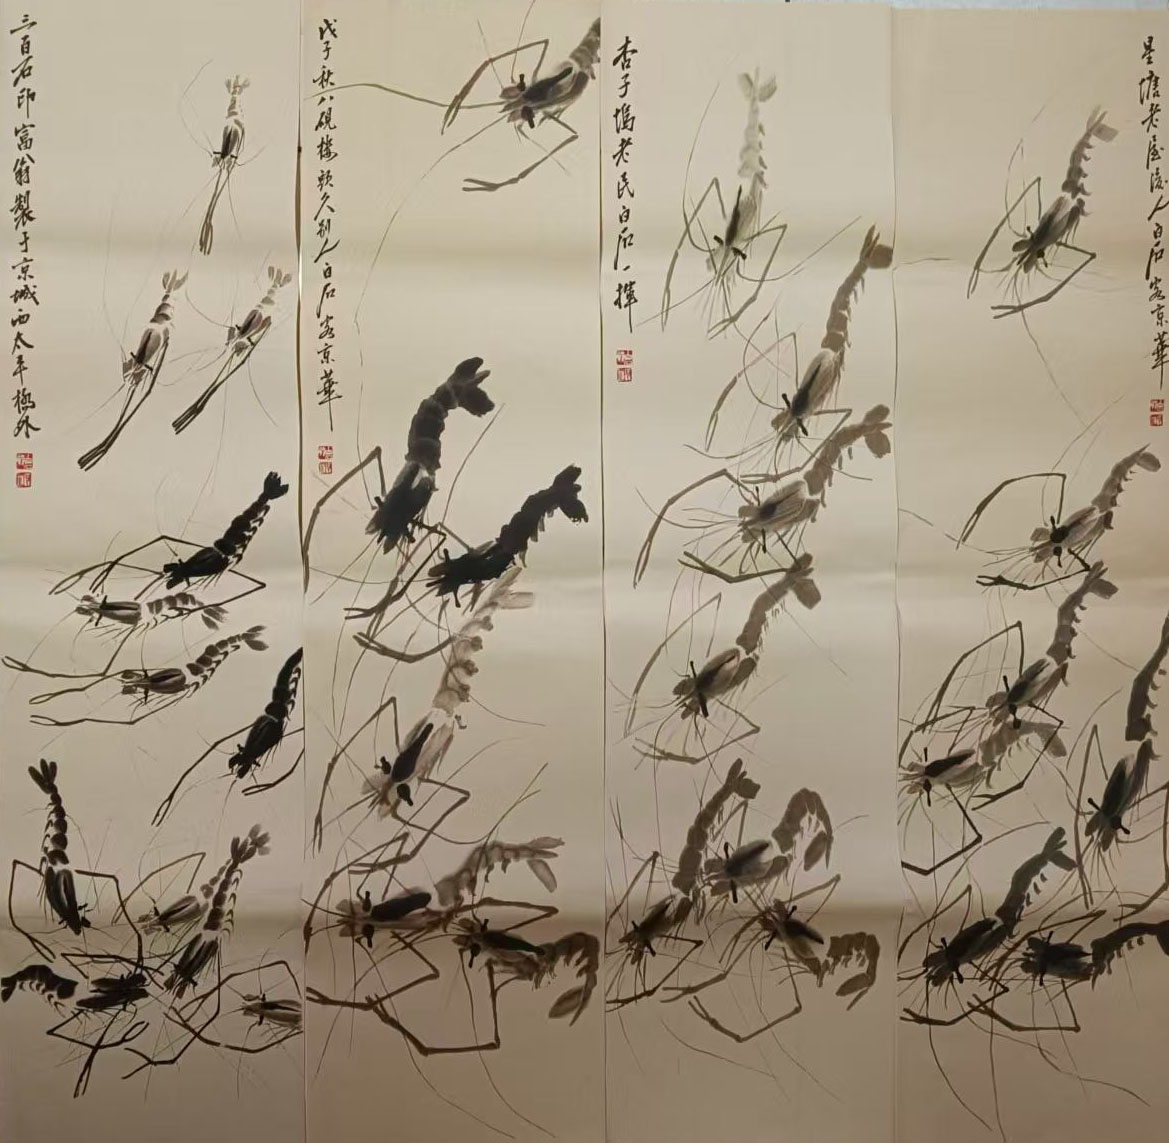 星塘老屋後人白石客京華
杏子塢老民白石一揮
戊子秋八硯樓頭久別人白石客京華
三百石印富翁製于京城西太平橋外